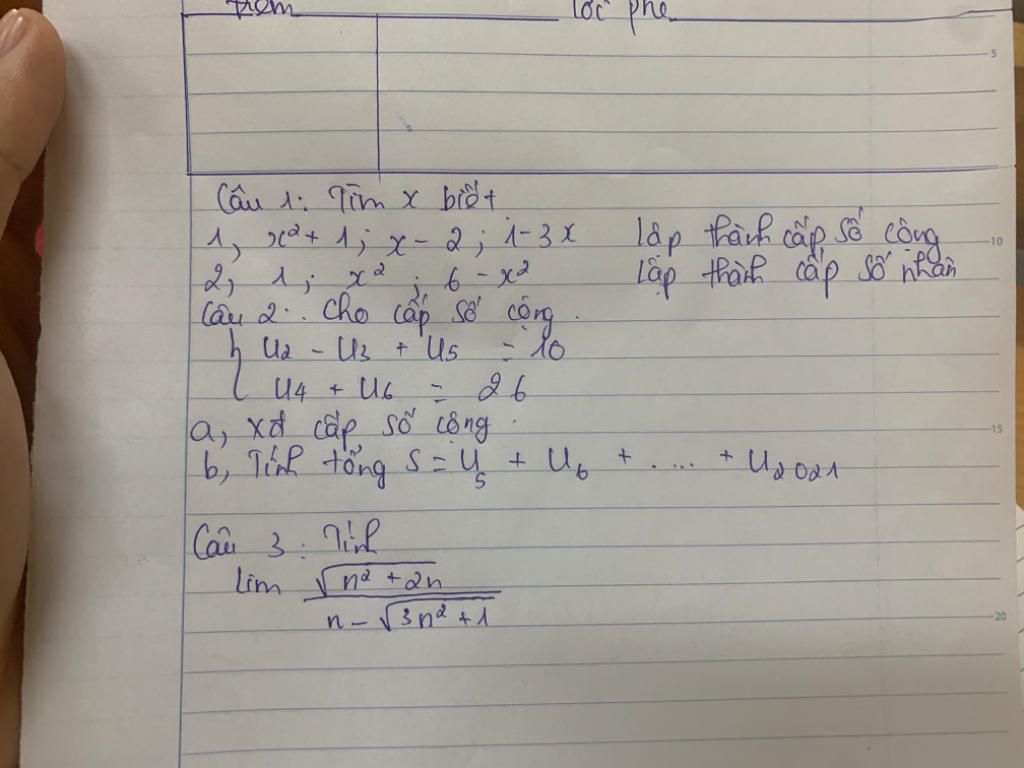 lời phê
Câu 1: Tìm x biết
1, x² + 1; x - 2; 1 - 3x lập thành cấp số cộng
2, 1; x²; 6 - x² lập thành cấp số nhân
Câu 2: Cho cấp số cộng.
{ U2 - U3 + U5 = 10
U4 + U6 = 26
a, xđ cấp số cộng.
b, Tính tổng S = U5 + U6 + .... + U2021
Câu 3: Tính
lim √(n² + 2n) / (n - √(3n² + 1))
5
10
15
20